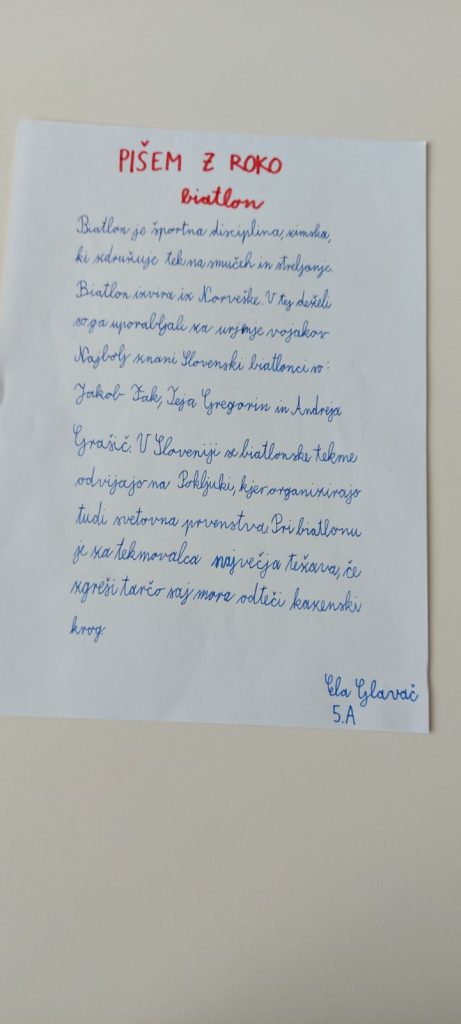 PIŠEM Z ROKO
biatlon
Biatlon je športna disciplina, zimska,
ki združuje tek na smučeh in streljanje.
Biatlon izvira iz Norveške. V tej deželi
so ga uporabljali za urjenje vojakov
Najbolj znani Slovenski biatlonci so:
Jakob Fak, Teja Gregorin in Andreja
Grašič. V Sloveniji se biatlonske tekme
odvijajo na Pokljuki, kjer organizirajo
tudi svetovna prvenstva. Pri biatlonu
je za tekmovalca največja težava, če
zgreši tarčo saj mora odteči kazenski
krog.
Ela Glavač
5.A